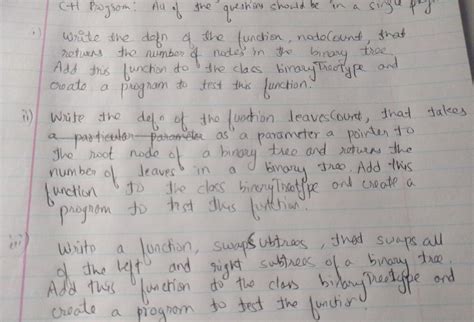 C++ Program: All of the questions should be in a single
i) Write the defn of the function, nodeCount, that
returns the number of nodes in the binary tree.
Add this function to the class binaryTreeType and
create a program to test this function.
ii) Write the defn of the function leavesCount, that takes
a particular parameter as a parameter a pointer to
the root node of a binary tree and returns the
number of leaves in a binary tree. Add this
function to the class binaryTreeType and create a
program to test this function.
iii) Write a function, swapSubtrees, that swaps all
of the left and right subtrees of a binary tree.
Add this function to the class binaryTreeType and
create a program to test the function.